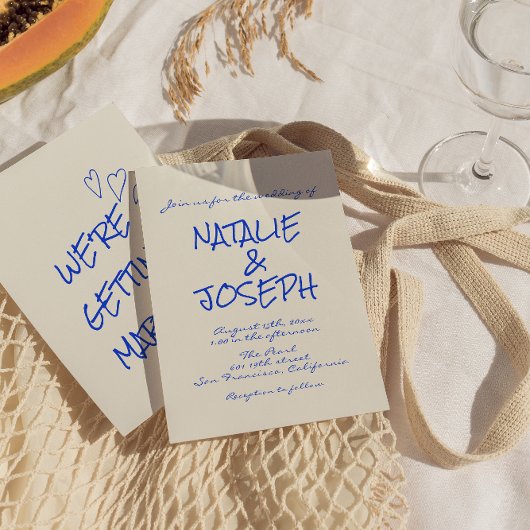 WE'RE
GETTIN
MAR
Join us for the wedding of
NATALIE
&
JOSEPH
August 15th, 20xx
1.00 in the afternoon
The Pearl
601 19th street
San Francisco, California
Reception to follow